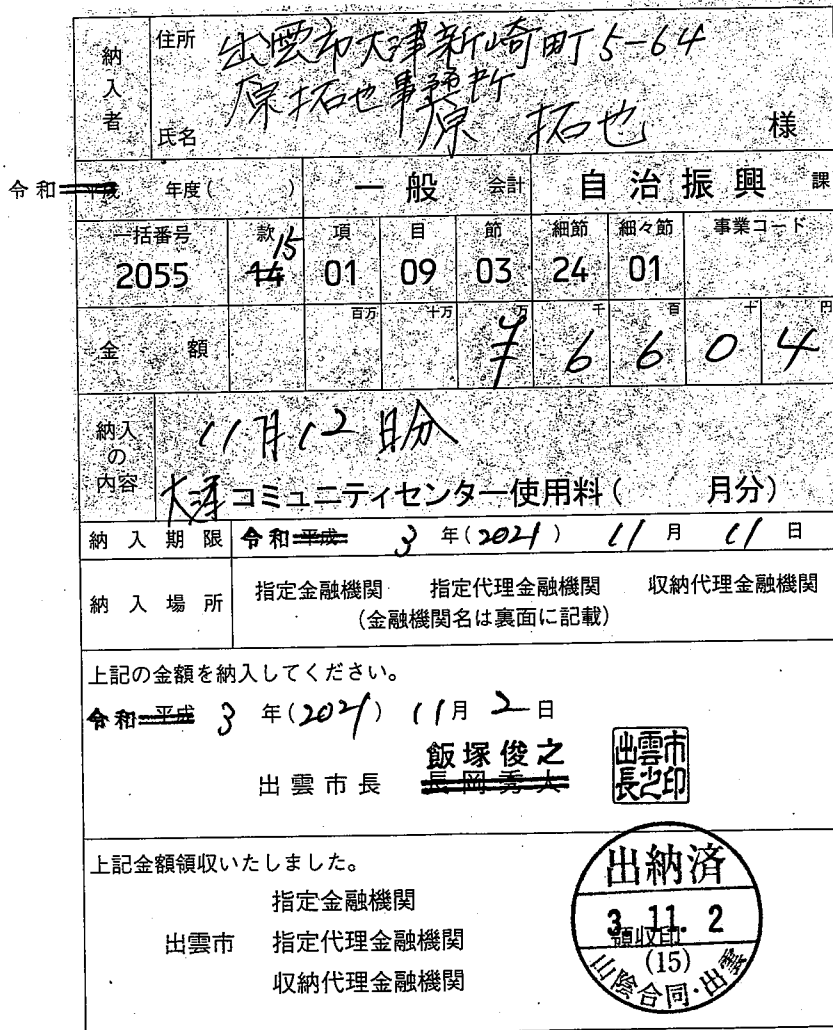 納入者
住所 出雲市大津新崎町5-64
原拓也事務所
氏名 原 拓也 様
令和 平成 年度( ) 一般 会計 自治振興 課
一括番号 款 項 目 節 細節 細々節 事業コード
15
2055 14 01 09 03 24 01
百万 十万 万 千 百 十 円
金額 ¥ 6 6 0 4
納入の内容
11月12日分
大津コミュニティセンター使用料( 月分)
納入期限 令和 平成 3年(2021) 11月 11日
納入場所 指定金融機関 指定代理金融機関 収納代理金融機関
(金融機関名は裏面に記載)
上記の金額を納入してください。
令和 平成 3年(2021) 11月 2日
飯塚俊之
出雲市長 長岡秀人
出雲市長之印
上記金額領収いたしました。
指定金融機関
出雲市 指定代理金融機関
収納代理金融機関
出納済
3.11.2
領収印
(15)
山陰合同・出雲